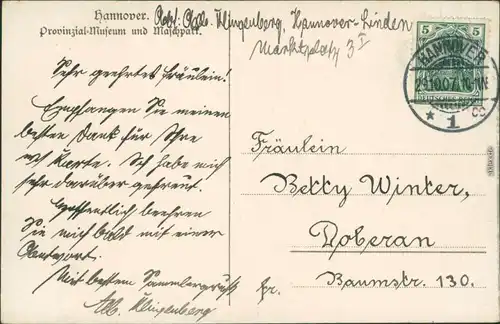 Hannover.
Provinzial-Museum und Maschpark.
Abs: Alb. Klingenberg, Hannover-Linden
Marktplatz 3 I
5 5
HANNOVER
29.10.07. 10-11V
DEUTSCHES REICH
* 1
Sehr geehrtes Fräulein!
Empfangen Sie meinen
besten Dank für Ihre
Karte. Ich habe mich
sehr darüber gefreut.
Hoffentlich beehren
Sie mich bald mit einer
Antwort.
Mit besten Sammlergruß
Alb. Klingenberg
Fräulein
Betty Winter,
Doberan
Baumstr. 130.